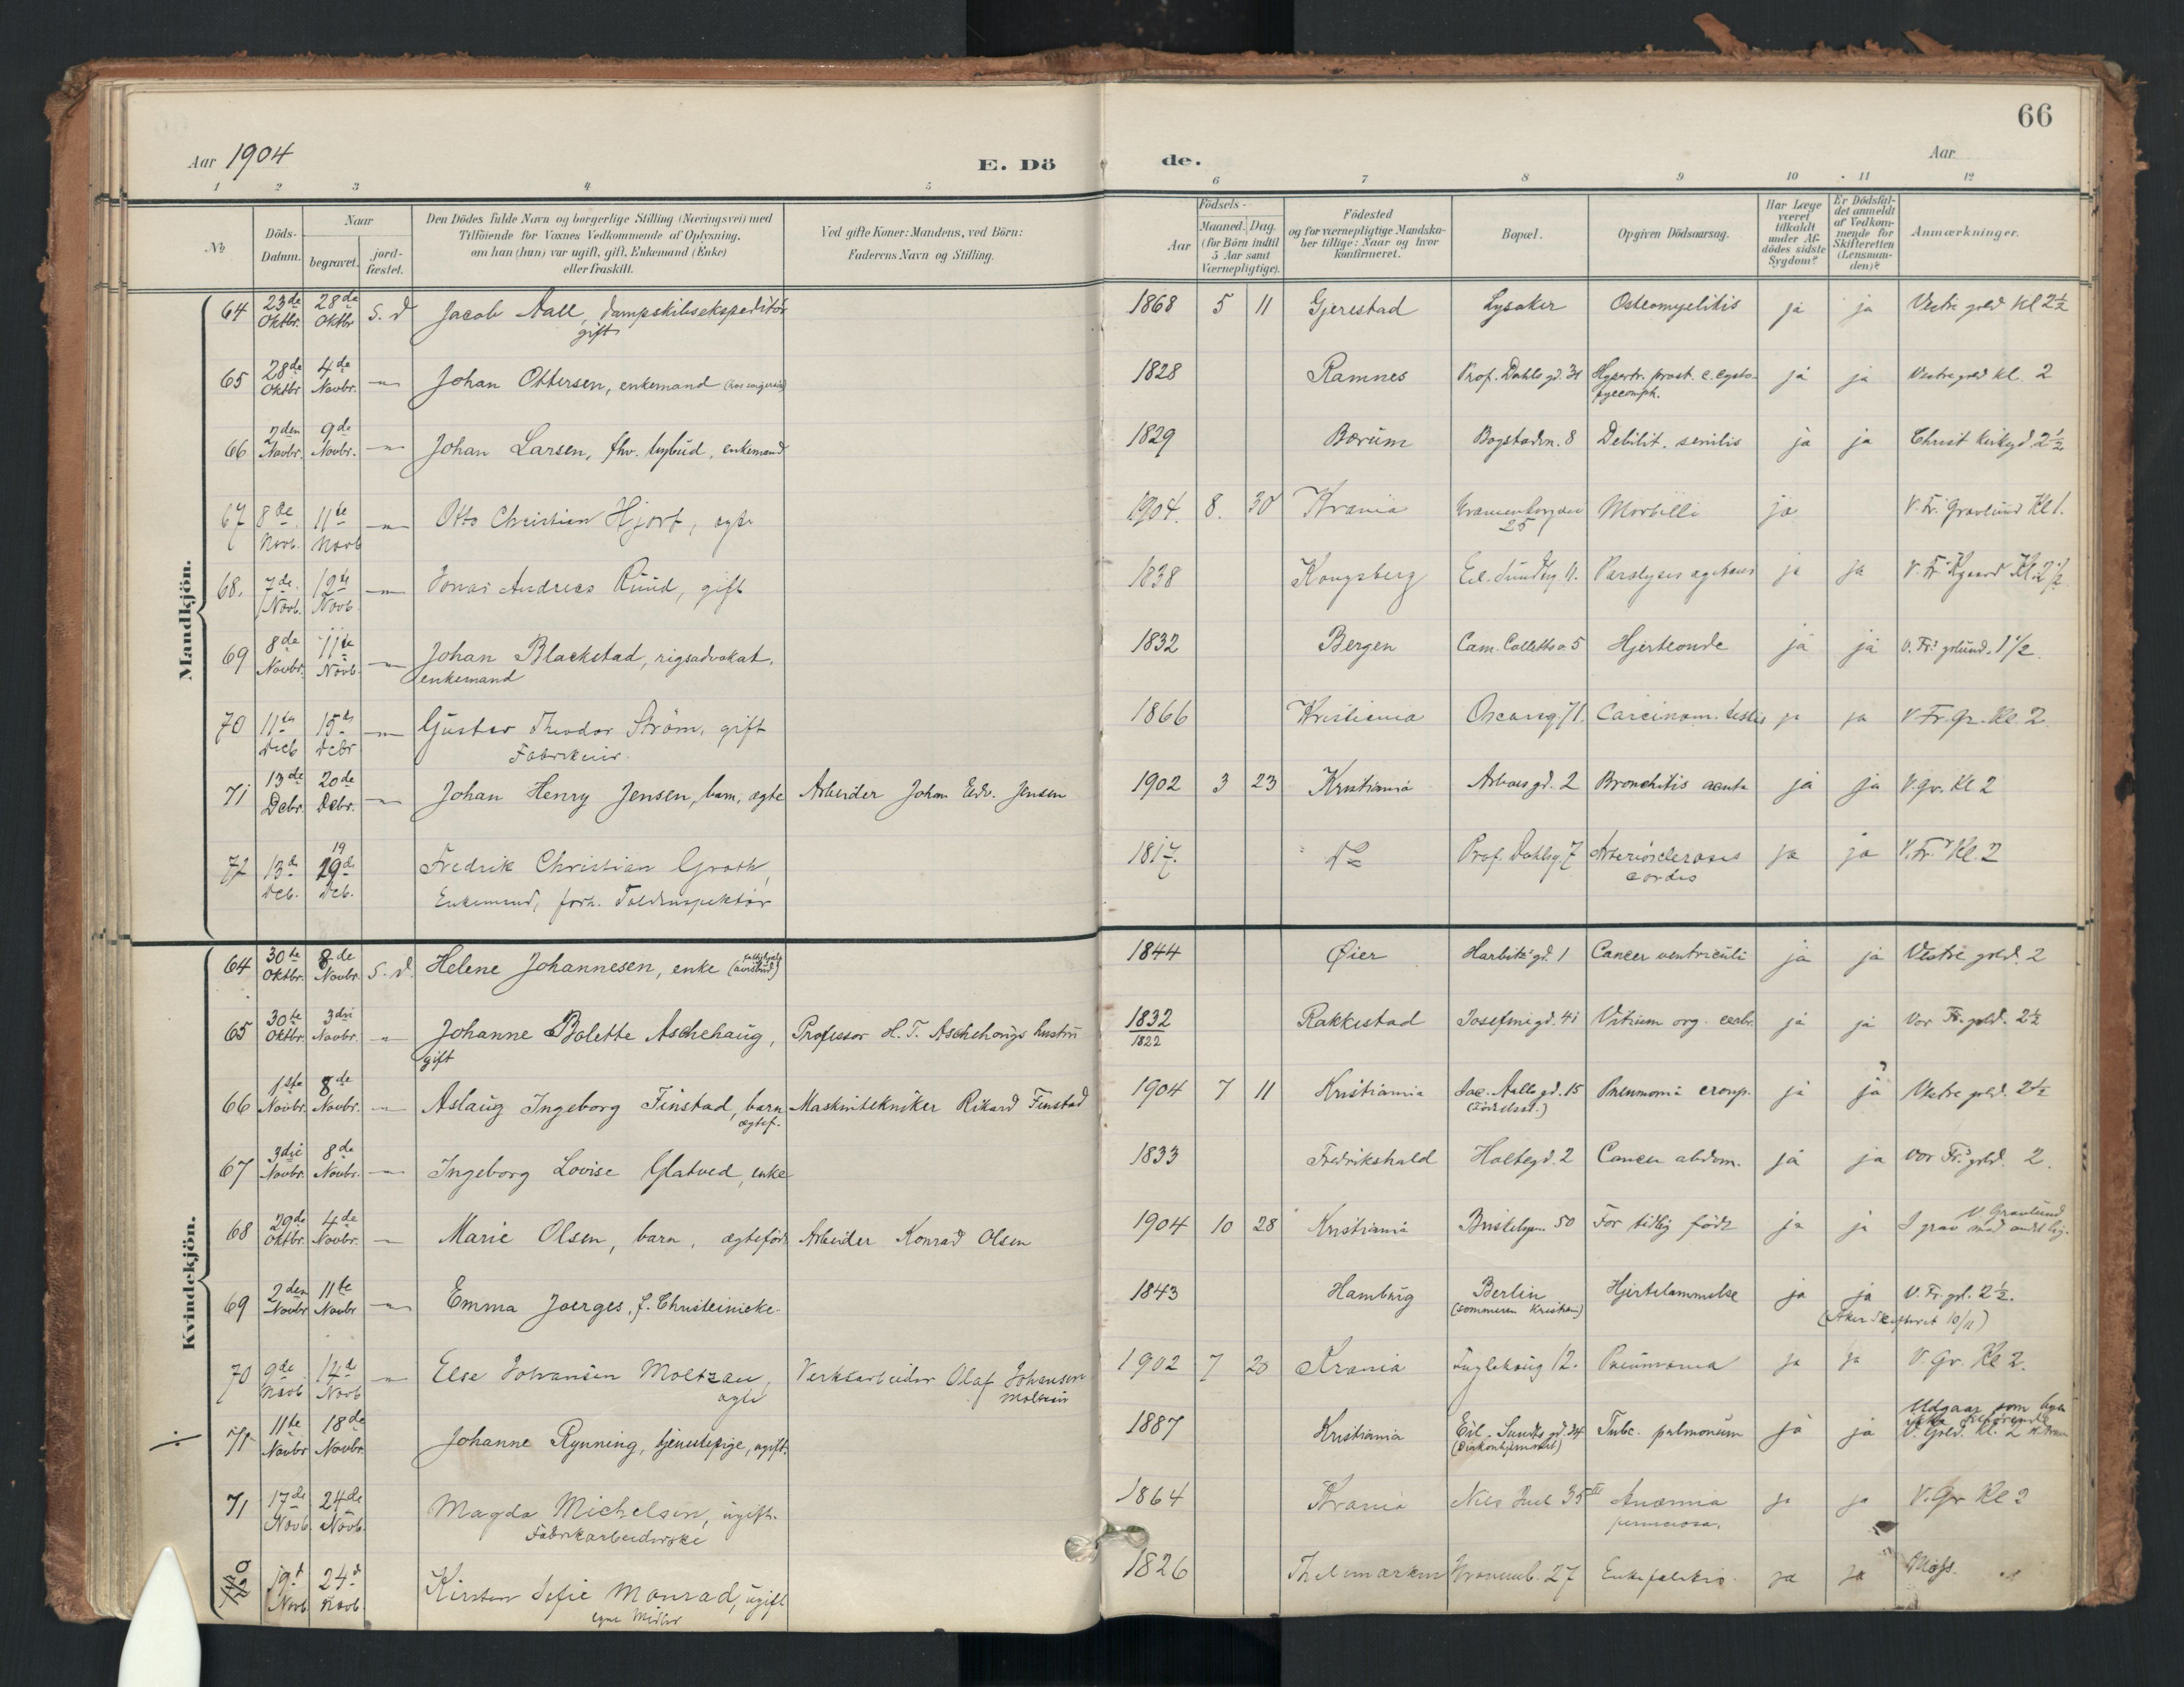 66
Aar 1904
E. Dö
de.
Aar
1 2 3 4 5 6 7 8 9 10 11 12
No
Döds-
Datum.
Naar
begravet.
jord-
fæstet.
Den Dödes fulde Navn og borgerlige Stilling (Næringsvei) med
Tilföiende for Voxnes Vedkommende af Oplysning,
om han (hun) var ugift, gift, Enkemand (Enke)
eller fraskilt.
Ved gifte Koner: Mandens, ved Börn:
Faderens Navn og Stilling.
Födsels-
Aar
Maaned. Dag.
(for Börn indtil
5 Aar samt
Værnepligtige).
Födested
og for værnepligtige Mandska-
ber tillige: Naar og hvor
konfirmeret.
Bopæl.
Opgiven Dödsaarsag.
Har Læge
været
tilkaldt
under Af-
dödes sidste
Sygdom?
Er Dödsfal-
det anmeldt
af Vedkom-
mende for
Skifteretten
(Lensman-
den)?
Anmærkninger.
Mandkjön.
64 23de Oktbr. 28de Oktbr S. d Jacob Aall, dampskibsekspeditör gift 1868 5 11 Gjerestad Lysaker Osteomyelitis ja ja Vestre grld Kl 2½
65 28de Oktbr 4de Novbr. -"- Johan Ottersen, enkemand 1828 Ramnes Prof. Dahls gd. 31 Hypertr. prost. c. cysto- ja ja Vestre grld kl. 2
66 2den Novbr. 9de Novbr. -"- Johan Larsen, fhv. bybud, enkemand 1829 Bærum Bogstadvn. 8 Debilit. senilis ja ja Christ kirkegd. 2½
67 8de Novb. 11te Novb -"- Otto Christian Hjort, ægte 1904. 8. 30 Krania 25 Morbilli ja V. Fr. Gravlund Kl 1.
68. 7de Novb. 12te Novb -"- Jonas Andreas Ruud, gift 1838 Kongsberg Eil. Sundtsg 11. Paralysis agitans ja ja V. Fr. Kgaard Kl. 2½
69 8de Novbr. 11te Novb. -"- Johan Blackstad, rigsadvokat, enkemand 1832 Bergen Cam. Colletts v. 5 Hjerteonde ja ja V. Fr.s grlund. 1½.
70 11te Decb 15de Decbr -"- Gustav Theodor Ström, gift Fabrikeier. 1866 Kristiania Oscarsg 71. Carcinom. testis ja ja V. Fr. Gr. Kl. 2.
71 13de Debr. 20de Debr. -"- Johan Henry Jensen, barn, ægte Arbeider Johan Edv. Jensen 1902 3 23 Kristiania Arbos gd. 2 Bronchitis acuta ja ja V. gr. Kl 2
72 13de Deb. 19 29de Deb. Fredrik Christian Groth, Enkemand, forh. Toldinspektör 1817. do Prof. Dahlsg. 7 Arteriosclerosis cordis ja ja V. Fr. Kl. 2
Kvindekjön.
64 30te Oktbr. 8de Novbr. S. d. Helene Johannesen, enke (avisbud) 1844 Øier Harbitz' gd. 1 Cancer ventriculi ja ja Vestre grld. 2
65 30te Oktbr. 3die Novbr. -"- Johanne Bolette Aschehaug, gift Professor H. T. Aschehougs hustru 1832 1822 Rakkestad Josefine gd. 41 Vitium org. cerebr. ja ja Vor Fr. grld. 2½
66 1ste Novbr. 8de Novbr. -"- Aslaug Ingeborg Finstad, barn ægtef. Maskintekniker Rikard Finstad 1904 7 11 Kristiania Jac. Aalls gd. 15 (Födselsst.) Pneumonia croup. ja ja ? Vestre grld. 2½
67 3die Novbr. 8de Novbr. -"- Ingeborg Lovise Glatved, enke 1833 Fredrikshald Holtegd. 2 Cancer abdom. ja ja Vor Fr.s grld. 2.
68 29de Oktbr. 4de Novbr. -"- Marie Olsen, barn, ægteföd Arbeider Konrad Olsen 1904 10 28 Kristiania 50 For tidlig födt ja ja V. Gravlund I grav med andet lig.
69 2den Novbr 11te Novbr -"- Emma Joerges, f. Christeinicke. 1843 Hamburg Berlin Hjertelammelse ja ja (Aker Skifteret 10/11) V. Fr. grl. 2½.
70 9de Novb 14de Novb -"- Else Johansen Moltzau, ægte Verksarbeider Olaf Johansen Moltzau 1902 7 23 Krania Fuglehaug 12. Pneumonia ja ja V. Gr. Kl 2.
÷ 71 11te Novbr 18de Novbr. Johanne Rynning, tjenestepige, ugift. 1887 Kristiania Eil. Sundts gd. 34 (Diakonhjemmet) Tubc. pulmonum ja ja Udgaar som ikke V. Grld. Kl. 2
71 17de Novb. 24de Novb. Magda Michelsen, ugift. Fabrikarbeiderske 1864 Krania Niels Juel 35 III Anæmia perniciosa. ja ja V. Gr Kl 2
19de Novb 24de Novb Kirsten Sofie Monrad, ugift egne Midler 1826 Thelemarken 27 ja ja